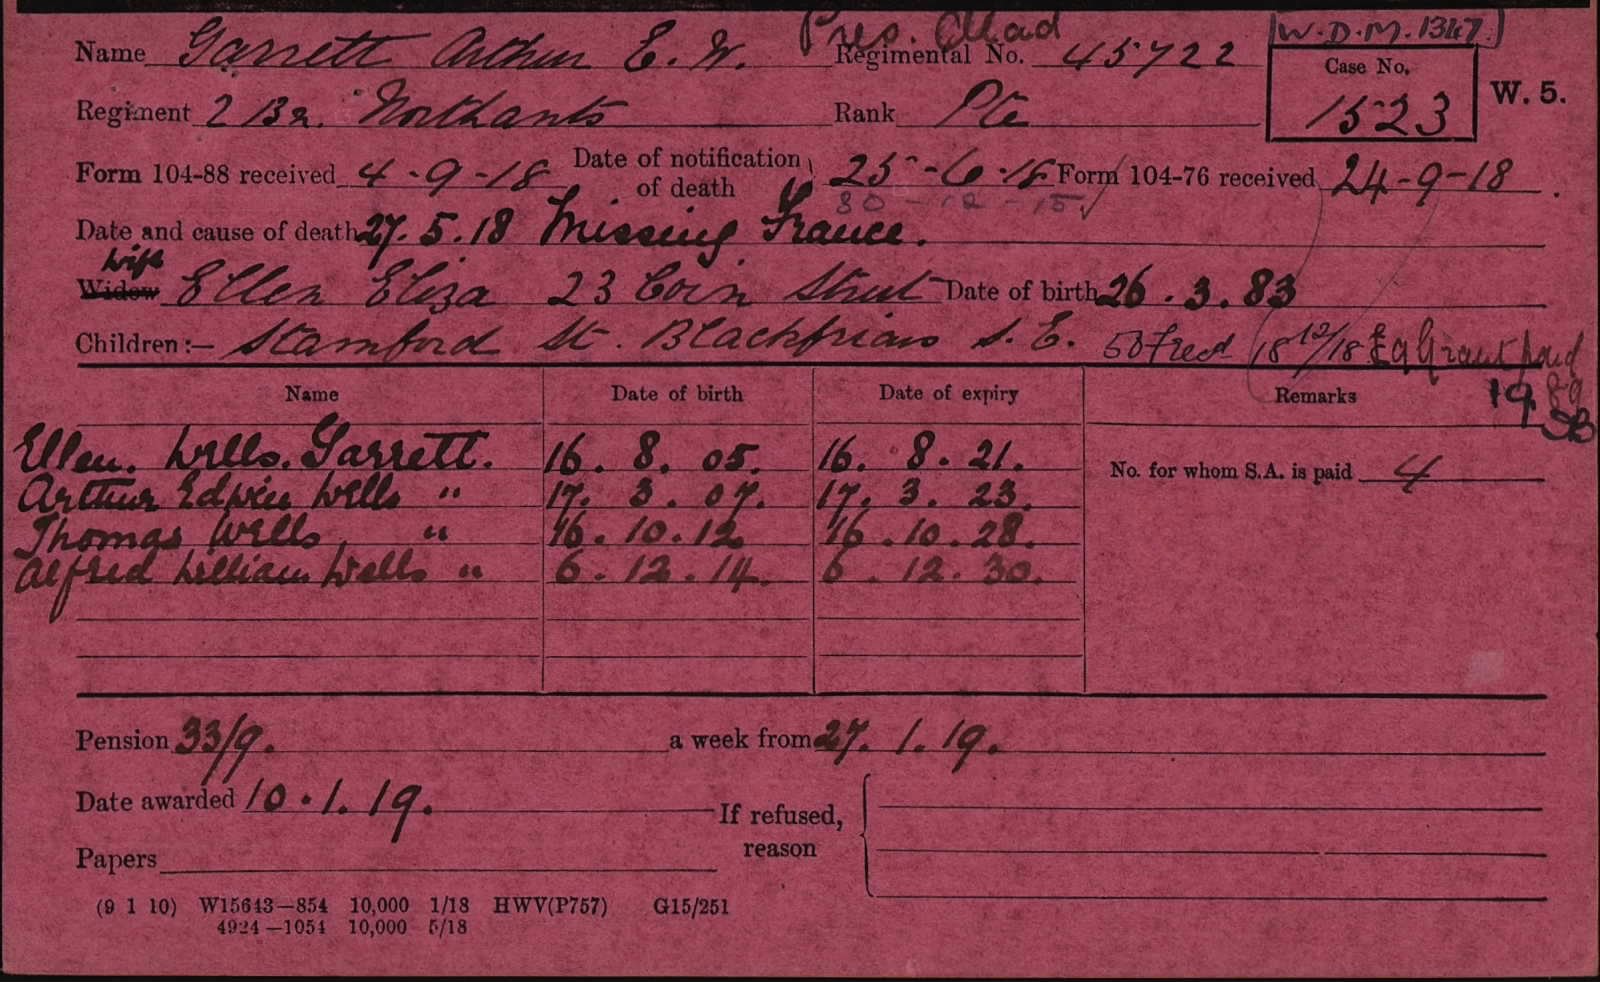 Pres. Dead [W.D.M. 1347.]
Name Garrett Arthur E. W. Regimental No. 45722 Case No. 1523 W. 5.
Regiment 2 Bn. Northants Rank Pte
Form 104-88 received 4-9-18 Date of notification of death 25-6-18 Form 104-76 received 24-9-18.
30-12-15
Date and cause of death 27.5.18 Missing France.
Wife
Widow Ellen Eliza 23 Coin Street Date of birth 26.3.83
Children:— Stamford St. Blackfriars S.E. 18 12/18 Grant paid
19.
Name Date of birth Date of expiry Remarks
Ellen. Wells. Garrett. 16. 8. 05. 16. 8. 21.
No. for whom S.A. is paid 4
Arthur Edwin Wells " 17. 3. 07. 17. 3. 23.
Thomas Wells " 16.10.12 16.10.28.
Alfred William Wells " 6.12.14. 6.12.30.
Pension 33/9. a week from 27.1.19.
Date awarded 10.1.19.
If refused, reason
Papers
(9 1 10) W15643—854 10,000 1/18 HWV(P757) G15/251
4924—1054 10,000 5/18